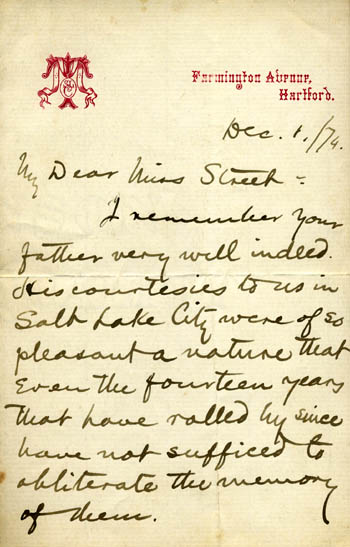 Farmington Avenue,
Hartford.
Dec. 1./74.
My Dear Miss Street -
I remember your
father very well indeed.
His courtesies to us in
Salt Lake City were of so
pleasant a nature that
even the fourteen years
that have rolled by since
have not sufficed to
obliterate the memory
of them.